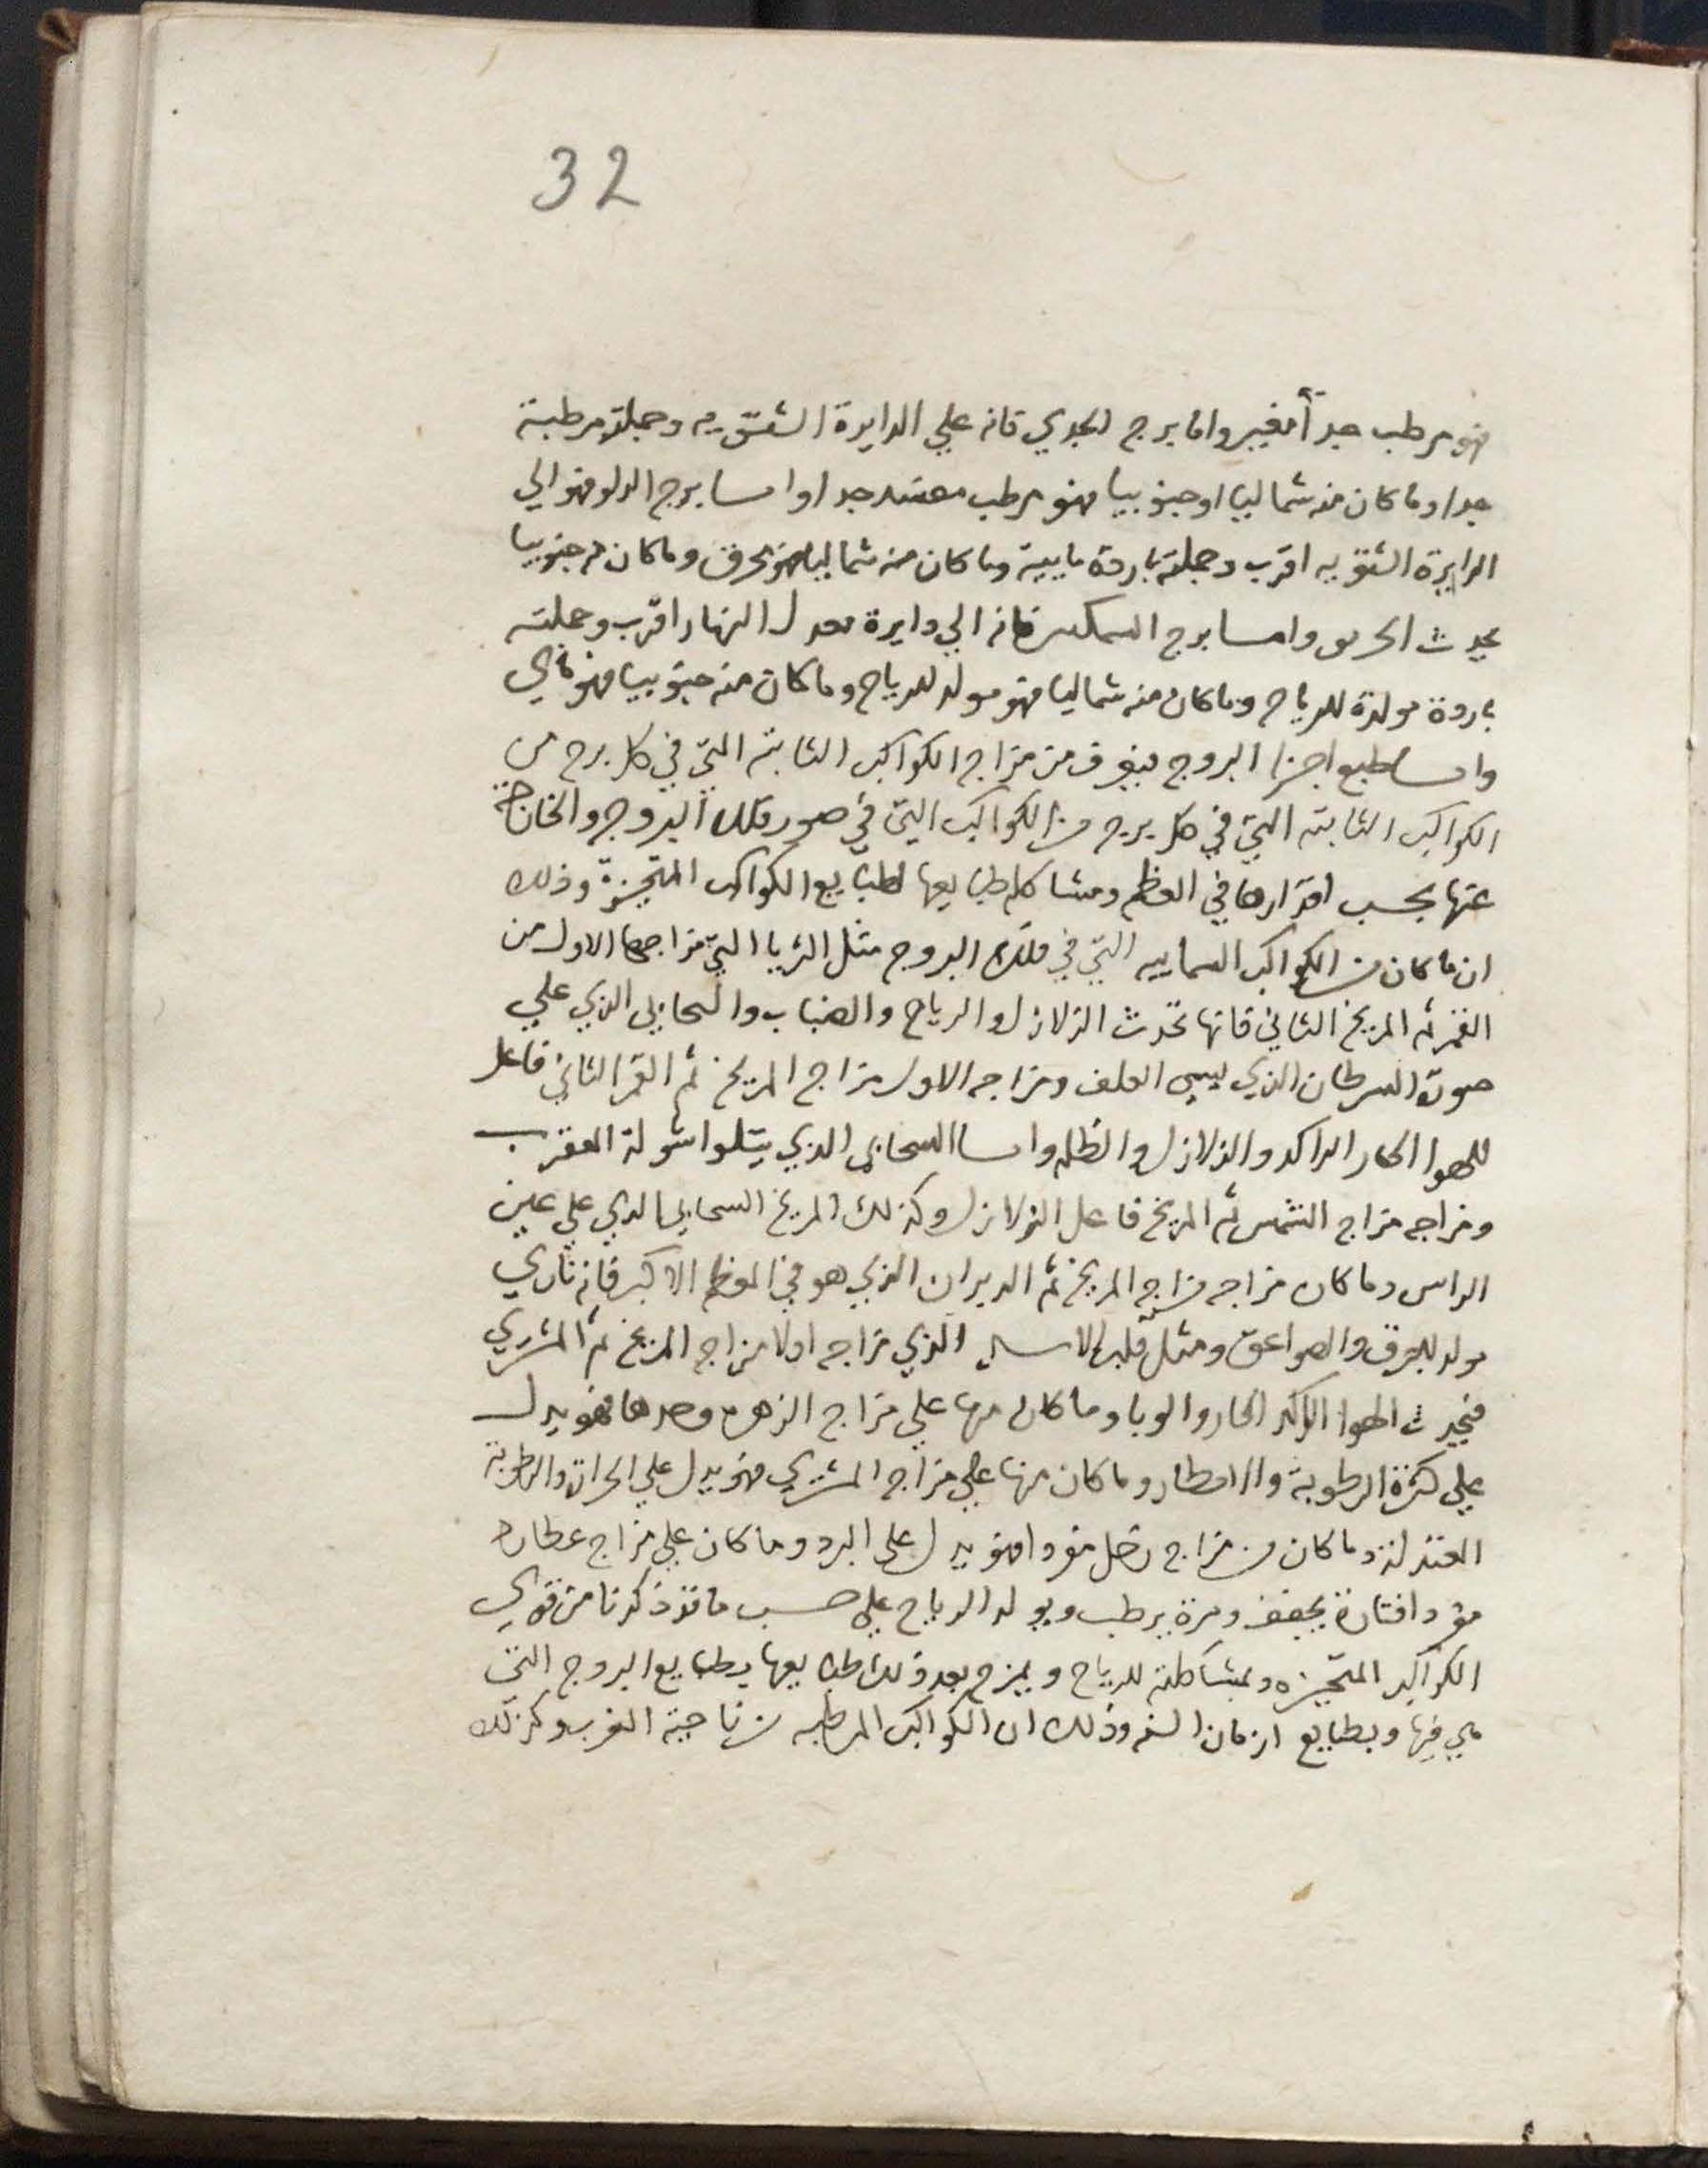 32
فهو مرطب جدا مغير واما برج الجدي فانه علي الدايرة الشتويه وجملته مرطبة
جدا وما كان منه شماليا او جنوبيا فهو مرطب مفسد جدا واما برج الدلو فهو الي
الدايرة الشتويه اقرب وجملته باردة ماييه وما كان منه شماليا فهو محرق وما كان منه جنوبيا
يحدث الحريق واما برج السمكتين فانه الي دايرة معدل النهار اقرب وجملته
باردة مولدة للرياح وما كان منه شماليا فهو مولد للرياح وما كان منه جنوبيا فهو مائي
واما طبع اجزا البروج فيعرف من مزاج الكواكب الثابته التي في كل برج من
الكواكب الثابته التي في كل برج من الكواكب التي في صور تلك البروج والخارجة
عنها بحسب اقدارها في العظم ومشاكله طبايعها لطبايع الكواكب المتحيزة وذلك
ان ما كان من الكواكب السماييه التي في فلك البروج مثل الثريا التي مزاجها الاول من
القمر ثم المريخ الثاني فانها تحدث الزلازل والرياح والضباب والسحابي الذي علي
صورة السرطان الذي يسمي العلف ومزاجه الاول مزاج المريخ ثم القمر الثاني فاعل
للهوا الحار الراكد والزلازل والظلمه واما السحابي الذي يتلوا شولة العقرب
ومزاجه مزاج الشمس ثم المريخ فاعل الزلازل وكذلك المريخ السحابي الذي علي عين
الراس وما كان مزاجه مزاج المريخ ثم الدبران الذي هو في العظم الاكبر فانه ناري
مولد للبرق والصواعق ومثل قلب الاسد الذي مزاجه اولا مزاج المريخ ثم المشتري
فيحدث الهوا الراكد الحار والوبا وما كان منها علي مزاج الزهره وحدها فهو يدل
علي كثرة الرطوبة والامطار وما كان منها علي مزاج المشتري فهو يدل علي الحرارة والرطوبة
المعتدلة وما كان من مزاج زحل مفردا فهو يدل علي البرد وما كان علي مزاج عطارد
مفردا فتارة يجفف ومرة يرطب ويولد الرياح علي حسب ما قد ذكرنا من قوي
الكواكب المتحيزه ومشاكلته للرياح ويمزج بعد ذلك طبايعها بطبايع البروج التي
هي فيها وبطبايع ازمان السنه وذلك ان الكواكب المرطبه من ناحية المغرب وكذلك